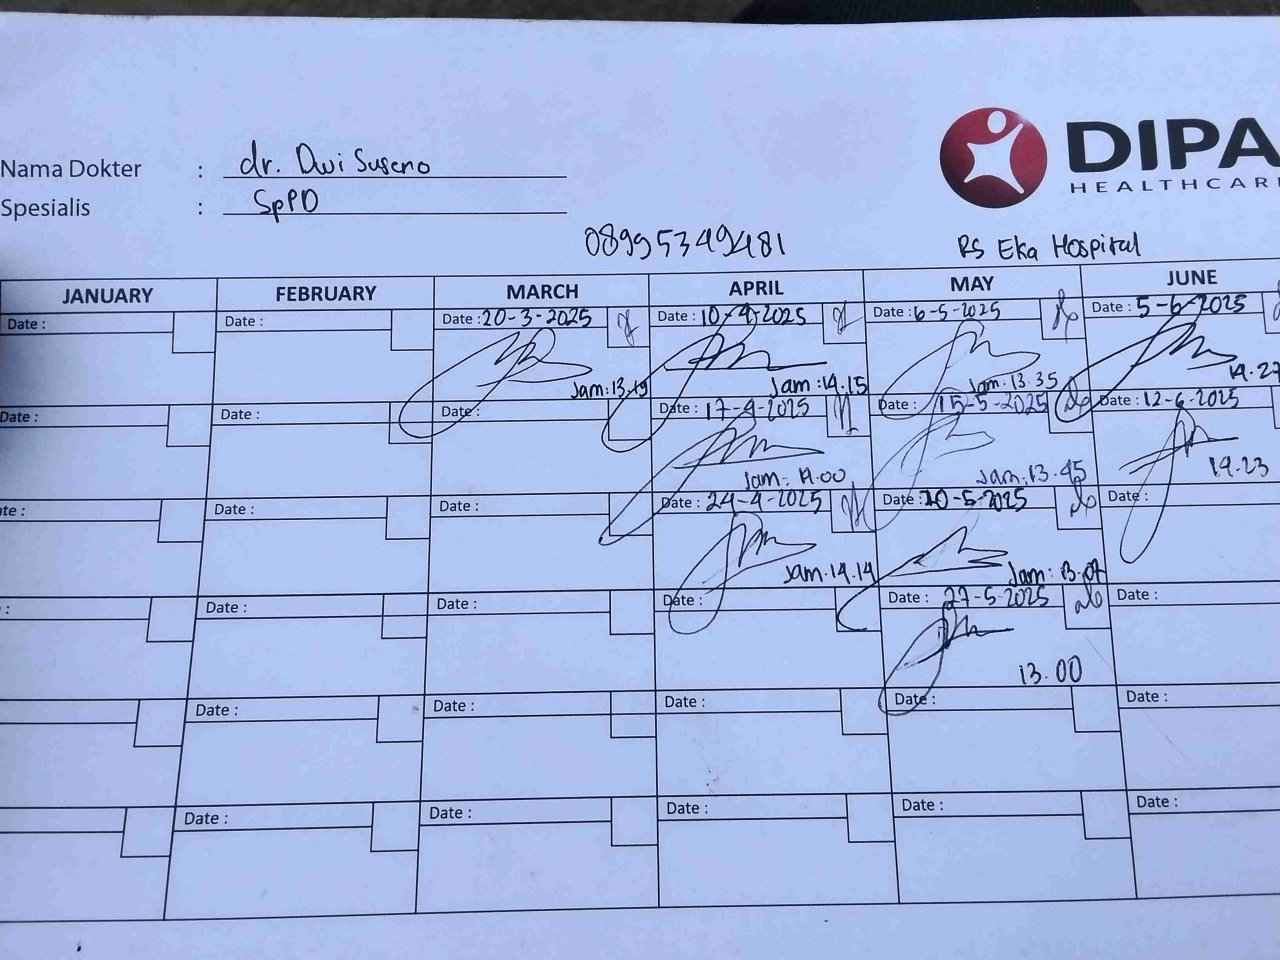 DIPA
HEALTHCAR
Nama Dokter : dr. Dwi Suseno
Spesialis : SpPD
08995349481 RS Eka Hospital
JANUARY FEBRUARY MARCH APRIL MAY JUNE
Date : Date : Date : 20-3-2025 Date : 10-4-2025 Date : 6-5-2025 Date : 5-6-2025
Jam : 13.19 Jam : 14.15 Jam : 13.35 14.27
Date : Date : Date : Date : 17-4-2025 Date : 15-5-2025 Date : 12-6-2025
Jam : 14.00 Jam : 13.45 14.23
ate : Date : Date : Date : 24-4-2025 Date : 20-5-2025 Date :
Jam . 14.14 Jam : 13.07
: Date : Date : Date : Date : 27-5-2025 Date :
13.00
Date : Date : Date : Date : Date :
Date : Date : Date : Date : Date :